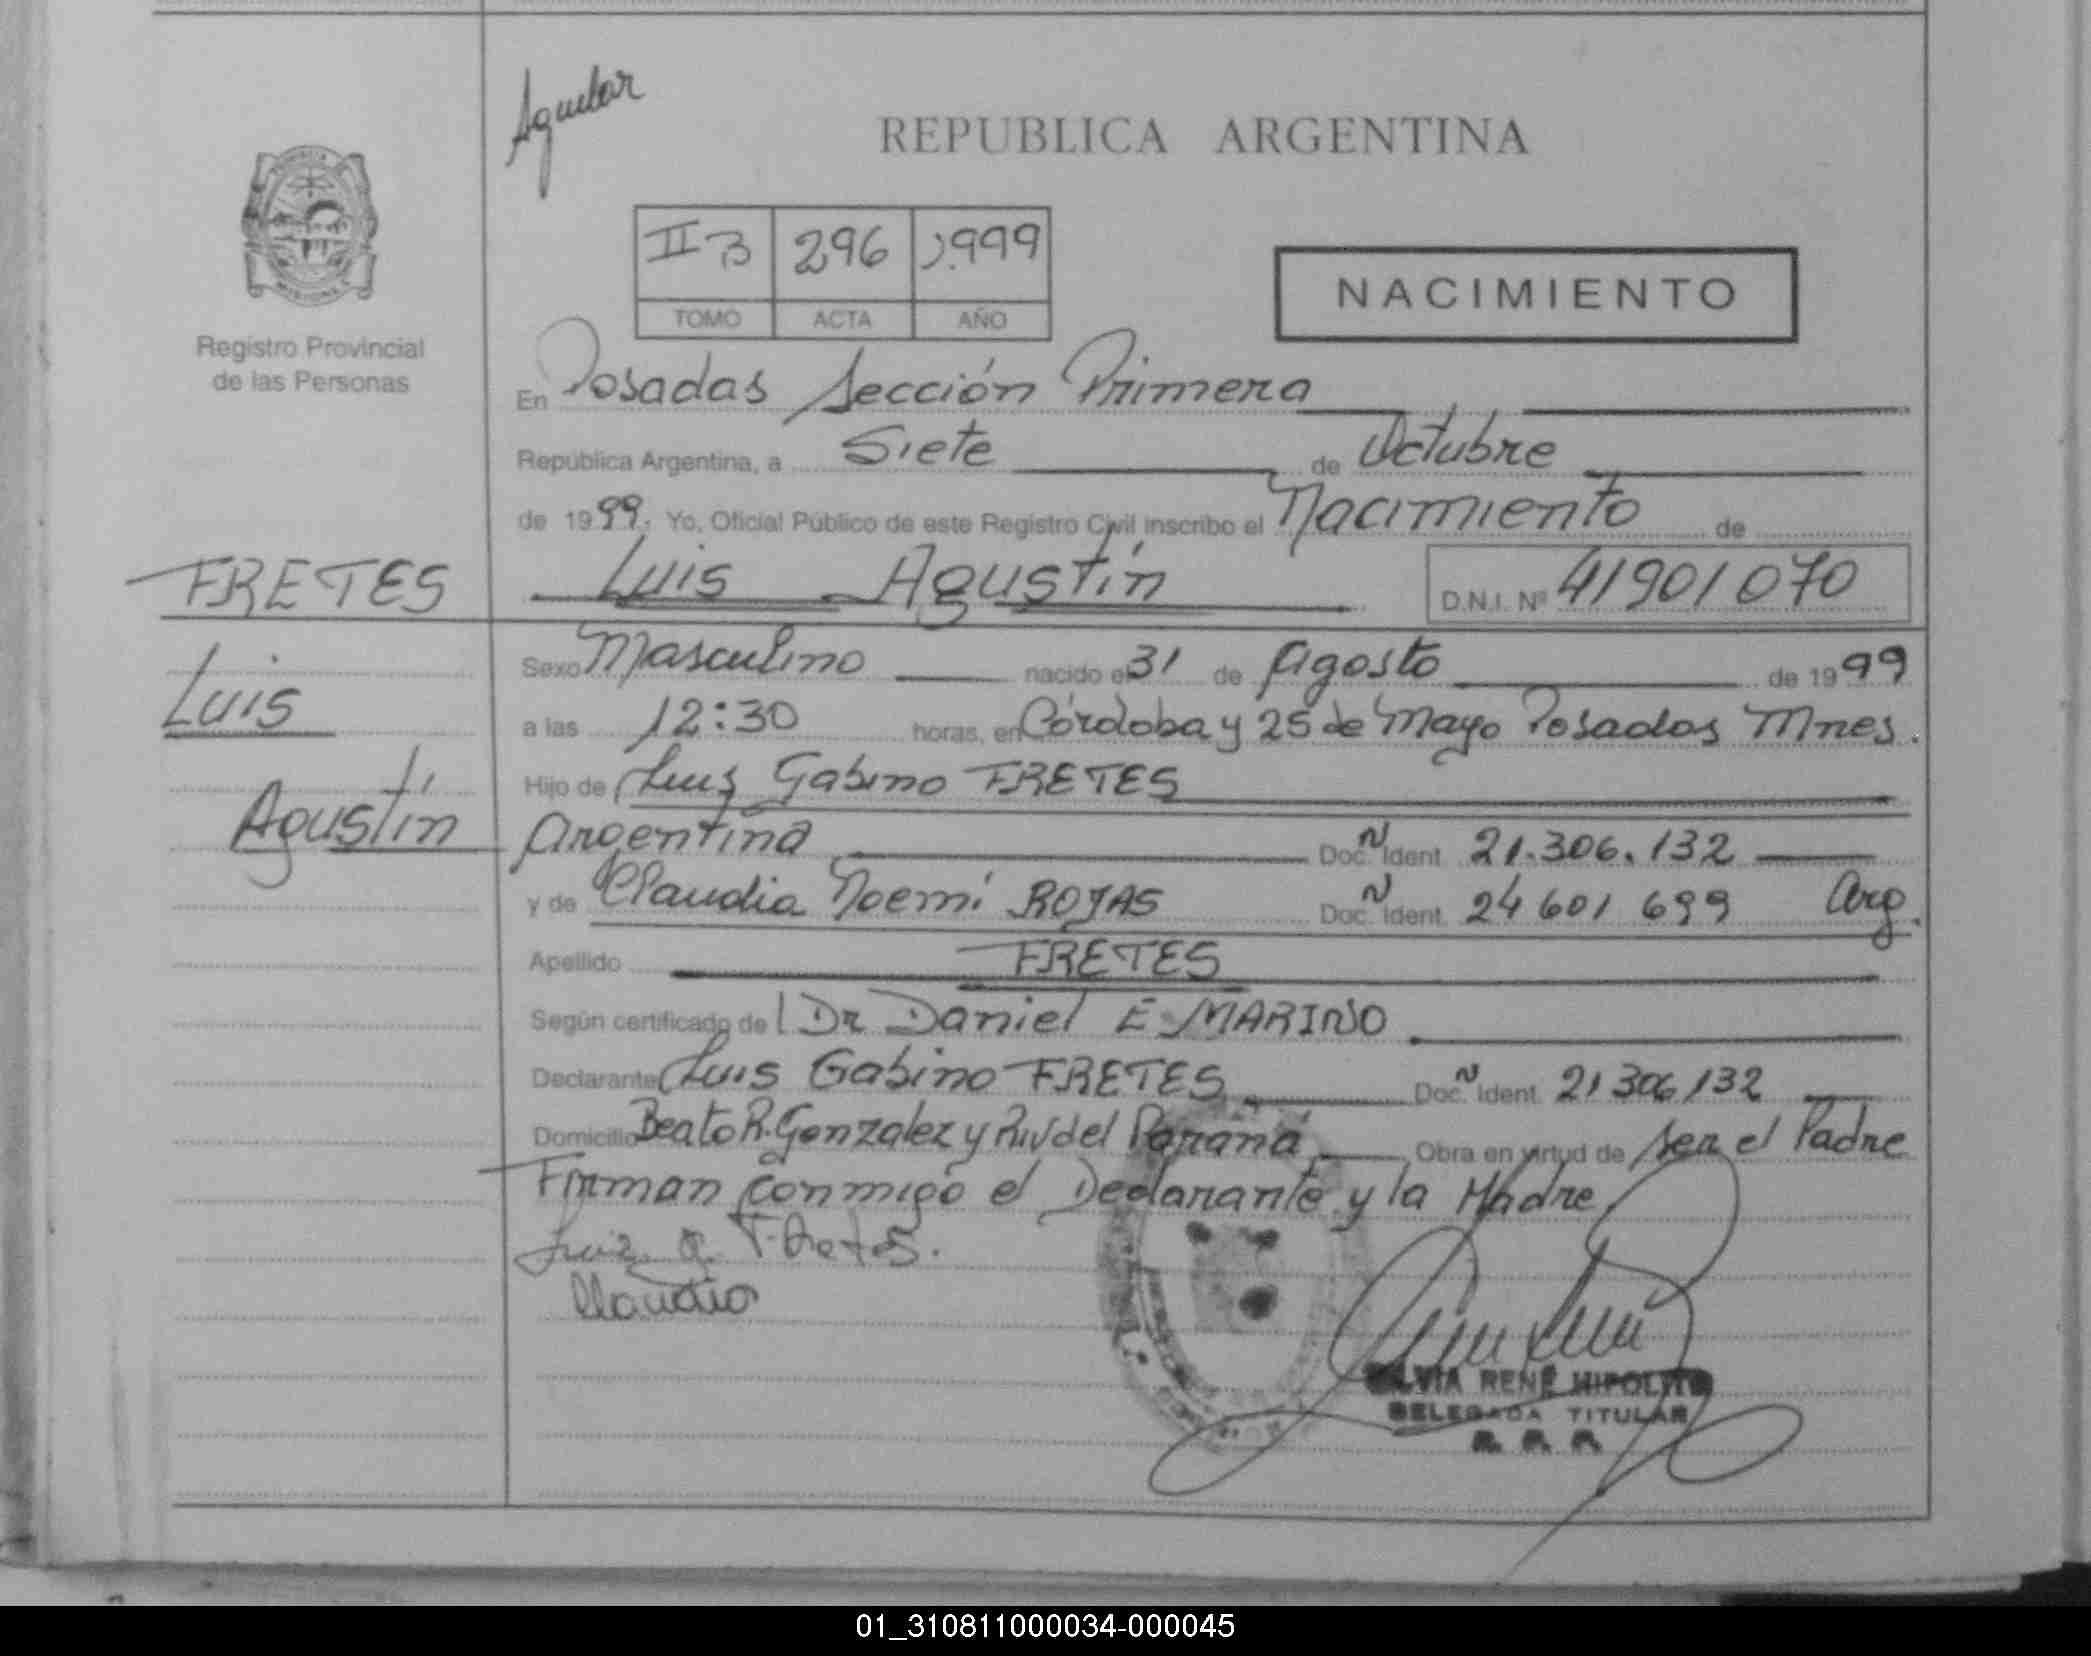 Aguilar
REPUBLICA ARGENTINA
II B 296 1.999
TOMO ACTA AÑO
NACIMIENTO
Registro Provincial
de las Personas
En Posadas Sección Primera
República Argentina, a Siete de Octubre
de 1999. Yo, Oficial Público de este Registro Civil inscribo el Nacimiento de
FRETES Luis Agustín D.N.I. Nº 41901070
Luis
Agustín
Sexo Masculino nacido el 31 de Agosto de 1999
a las 12:30 horas, en Córdoba y 25 de Mayo Posadas Mnes.
Hijo de Luis Gabino FRETES
Argentina Doc. Ñ Ident. 21.306.132
y de Claudia Noemí ROJAS Doc. Ñ Ident. 24 601 699 Arg.
Apellido FRETES
Según certificado de Dr Daniel E MARINO
Declarante Luis Gabino FRETES Doc. Ñ Ident. 21 306 132
Domicilio Beato R. Gonzalez y Riv del Paraná Obra en virtud de ser el Padre
Firman conmigo el Declarante y la Madre
Luis G. Fretes.
Claudia
SILVIA RENÉ HIPOLITO
DELEGADA TITULAR
R. P. P.
01_310811000034-000045